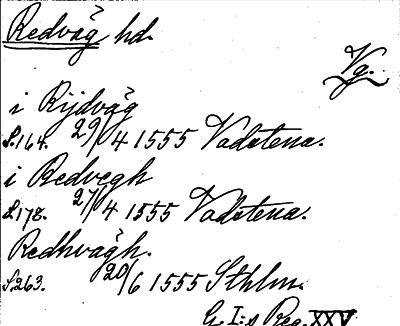 Redväg hd.
Vg.
i Rijdvåg
S.164. 29/4 1555 Vadstena.
i Redvegh
S.178. 27/4 1555 Vadstena.
Redhvägh.
S.263. 20/6 1555 Sthlm.
G. I:s Reg. XXV